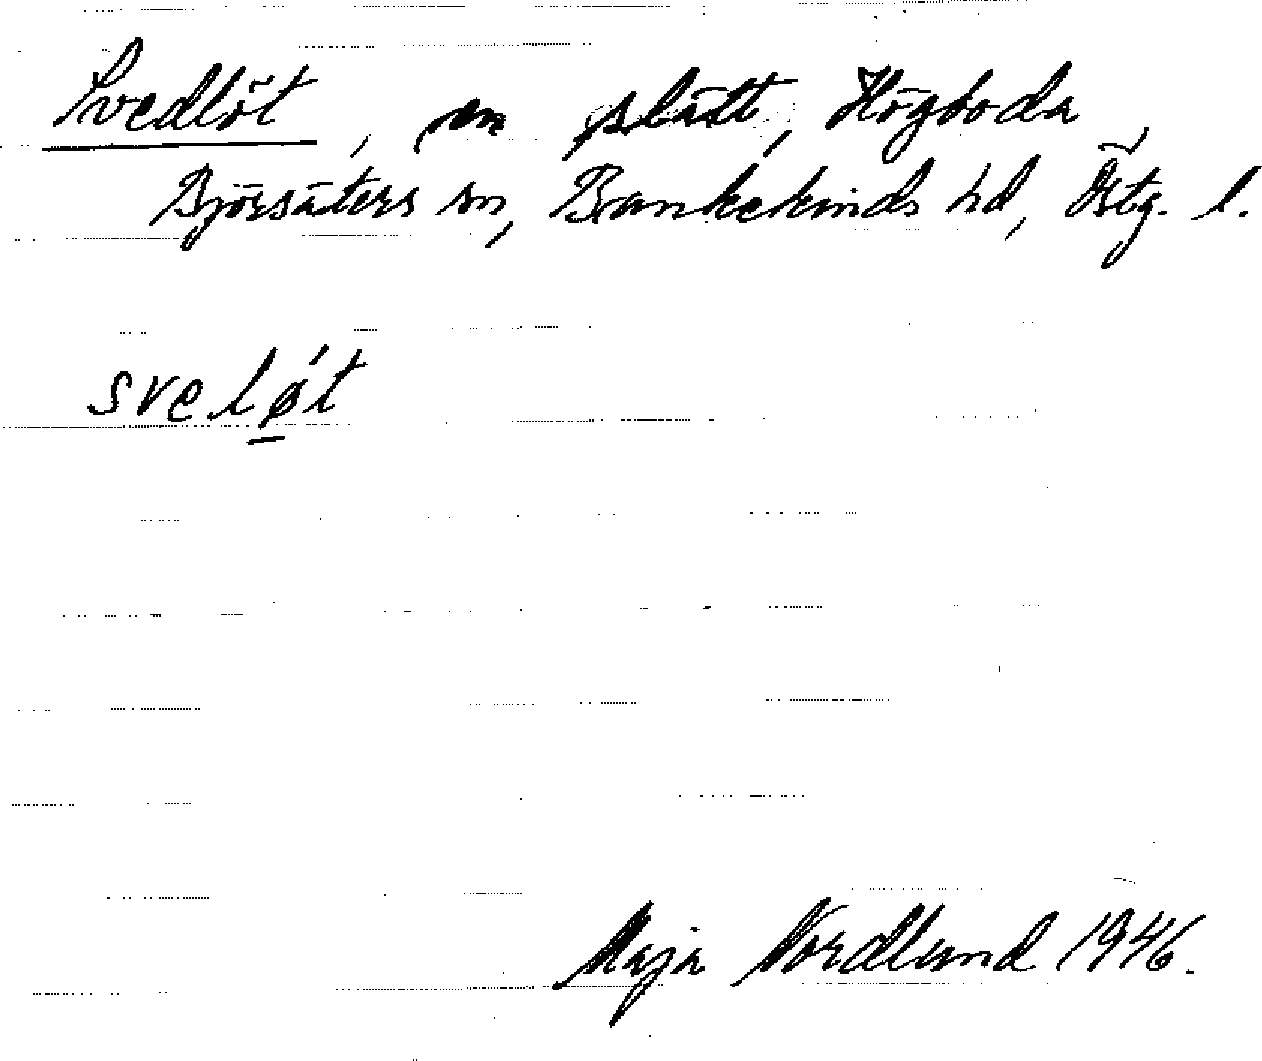 Svedlöt, en slätt, Högboda
Björsäters sn, Bankekinds hd, Östg. l.
svelǿt
Maja Nordlund 1946.